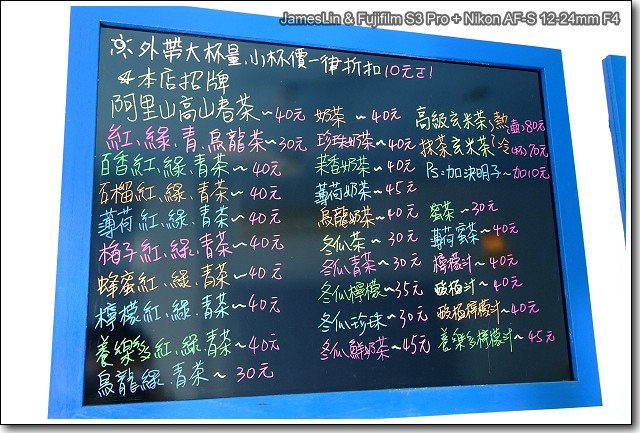 JamesLin & Fujifilm S3 Pro + Nikon AF-S 12-24mm F4
外帶大杯量,小杯價一律折扣10元
本店招牌
阿里山高山春茶~40元
紅,綠,青,烏龍茶~30元
百香紅,綠,青茶~40元
石榴紅,綠,青茶~40元
薄荷紅,綠,青茶~40元
梅子紅,綠,青茶~40元
蜂蜜紅,綠,青茶~40元
檸檬紅,綠,青茶~40元
養樂多紅,綠,青茶~40元
烏龍綠,青茶~30元
奶茶~40元
珍珠奶茶~40元
茉香奶茶~40元
薄荷奶茶~45元
烏龍奶茶~40元
冬瓜茶~30元
冬瓜青茶~30元
冬瓜檸檬~35元
冬瓜珍珠~30元
冬瓜鮮奶茶~45元
高級玄米茶,熱(壺)80元
抹茶玄米茶,冷(杯)70元
Ps=加決明子~加10元
蜜茶~30元
薄荷蜜茶~40元
檸檬汁~40元
酸梅汁~40元
酸梅檸檬汁~40元
養樂多檸檬汁~45元